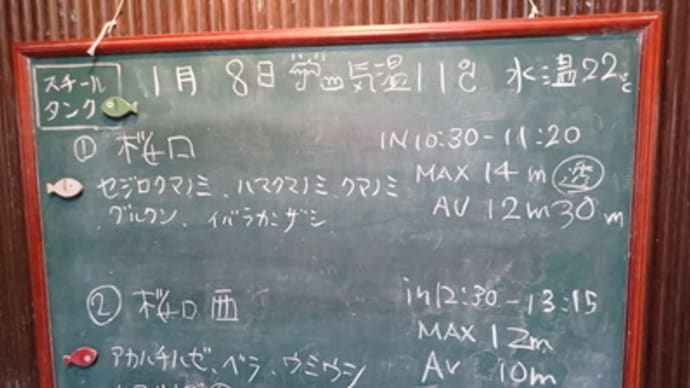 スチール
タンク
1月 8日 m気温11℃ 水温22℃
① 桜口 IN 10:30-11:20
MAX 14m 透
セジロクマノミ、ハマクマノミ、クマノミ
AV 12m 30m
グルクン、イバラカンザシ
② 桜口西 in 12:30-13:15
MAX 12m
アカハチハゼ、ベラ、ウミウシ
AV 10m